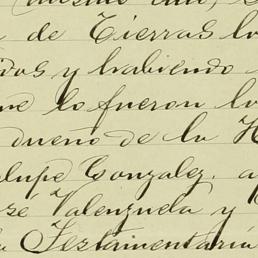 de Tierras lo
dos y habiendo
ue lo fueron lo
dueño de la H
alupe Gonzalez. a
sé Valenzuela y
a Testamentaría